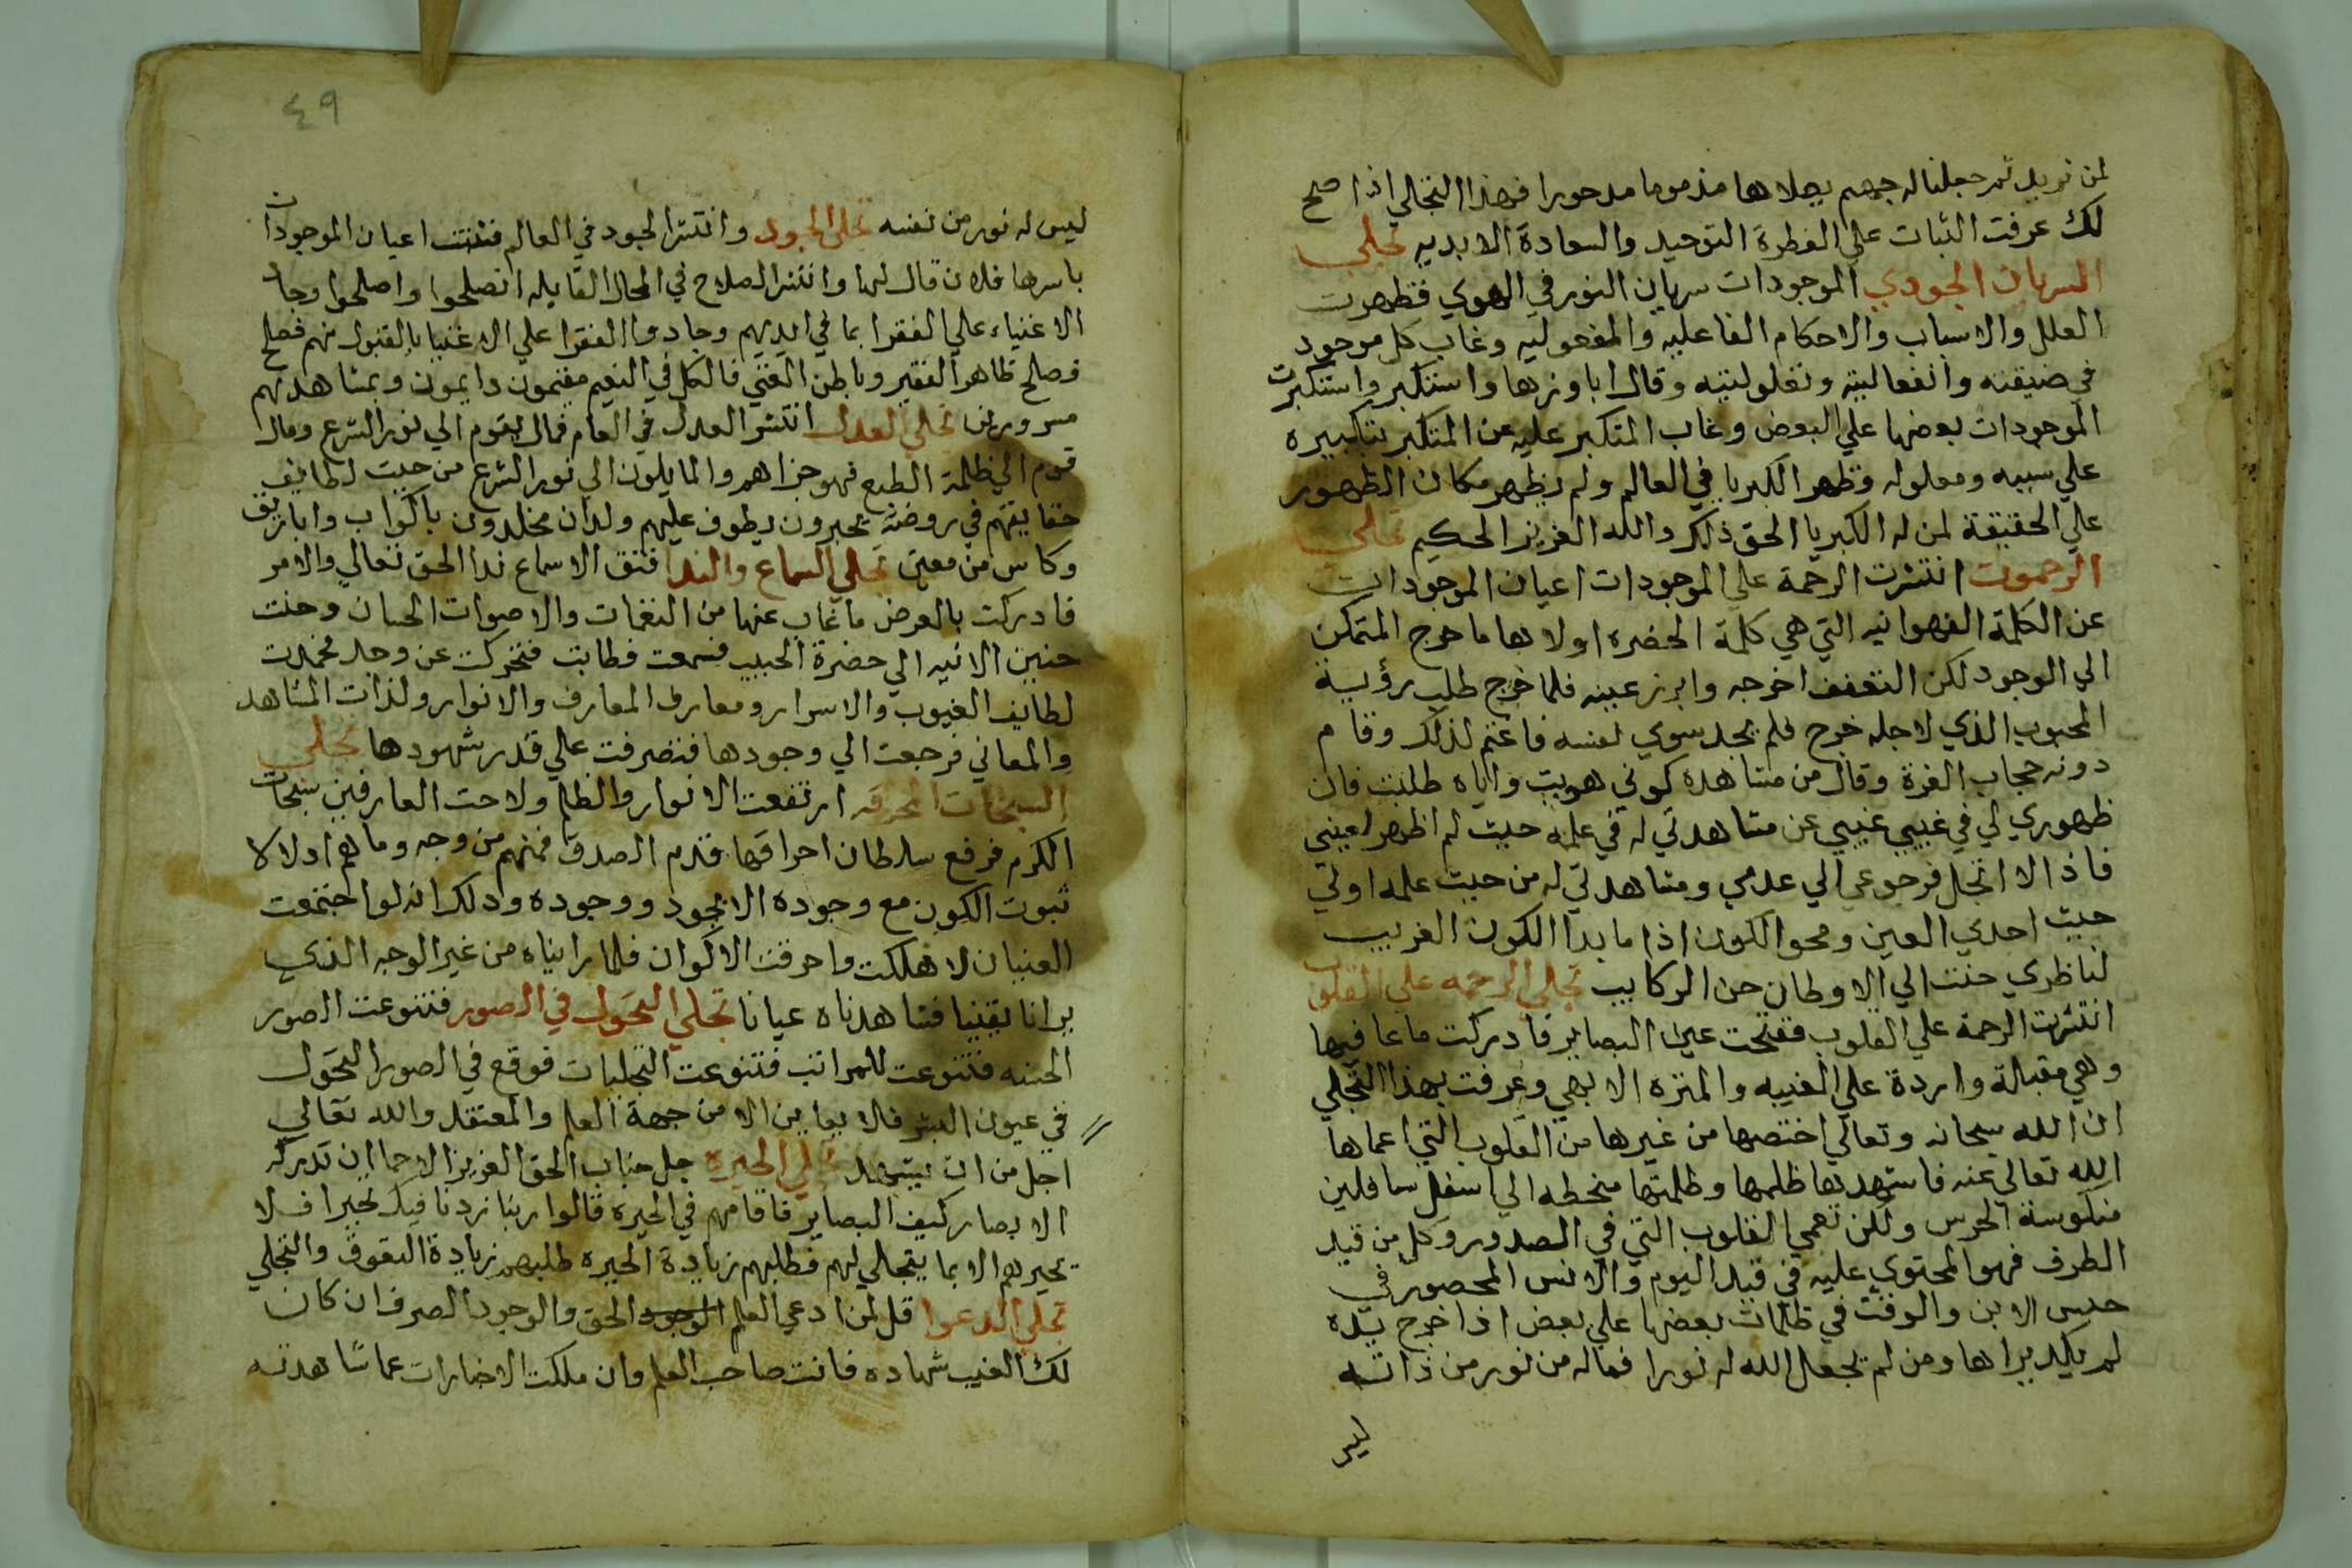 لمن نريد ثم جعلنا له جهنم يصلاها مذموما مدحورا فهذا التجلي اذا صح
لك عرفت الثبات علي الفطرة التوحيد والسعادة الابديه تجلي
السريان الجودي الموجودات سريان النور في الهوي فظهرت
العلل والاسباب والاحكام الفاعليه والمفعوليه وغاب كل موجود
في حقيقته وانفعاليته ومعلوليته وقال انا وزها واستكبر واستكبرت
الموجودات بعضها علي البعض وغاب المتكبر عليه عن المتكبر بتكبيره
علي سببه ومعلوله وظهر الكبريا في العالم ولم يظهر مكان الظهور
علي الحقيقة لمن له الكبريا الحق ذلكر والله العزيز الحكيم تجلي
الرحموت انتشرت الرحمة علي الموجودات اعيان الموجودات
عن الكلمة الفهوانيه التي هي كلمة الحضره اولاها ما خرج المتمكن
الي الوجود لكن التعفف اخرجه وابرز عينه فلما خرج طلب رؤيية
المحبوب الذي لاجله خرج فلم يجد سوي نفسه فاغتم لذلك وقام
دونه حجاب العزة وقال من مشاهدة كوني هربت واياه طلبت فان
ظهوري لي في غيبي عن مشاهدتي له في علمه حيث لم اظهر لعيني
فاذ الا اتجل فرجوعي الي عدمي ومشاهدتي له من حيث علمه اولي
حيث احدي العين ومحو الكون اذا ما بدا الكون الغريب
لناظري حننت الي الاوطان حن الركايب تجلي الرحمه علي القلوب
انتشرت الرحمة علي القلوب ففتحت عين البصاير فادركت ما غا فيها
وهي مقبلة واردة علي الغيبه والمنزه الابهي وعرفت بهذا التجلي
ان الله سبحانه وتعالي اختصها من غيرها من القلوب التي اعماها
الله تعالي عنه فاشهدها ظلمها وظلمتها منحطه الي اسفل سافلين
منكوسة الحرس ولكن تعمي القلوب التي في الصدور وكل من قيد
الطرف فهو المحتوي عليه في قيد اليوم والانس المحصور في
حبس الابن والوقت في ظلمات بعضها علي بعض اذا خرج يده
لم يكد يراها ومن لم يجعل الله له نورا فما له من نور من ذاته
ليس
٤٩
ليس له نور من نفسه تجلي الجود وانتشر الجود في العالم فثبتت اعيان الموجودات
باسرها فلان قال لها وانتشر الصلاح في المحال القابله انصلحوا واصلحوا وجاد
الاغنياء علي الفقرا بما في ايديهم وجادوا الفقرا علي الاغنيا بالقبول منهم فصلح
فصلح ظاهر الفقير وباطن الغني فالكل في النعيم مقيمون دايمون وبمشاهدتهم
مسرورين تجلي العدل انتشر العدل في العام فمال بقوم الي نور الشرع ومال
قوم الي ظلمة الطبع فهو جزاهم والمايلون الي نور الشرع من حيث لطايف
حقايقهم في روضة يحبرون يطوف عليهم ولدان مخلدون باكواب واباريق
وكاس من معين تجلي السماع والندا فتق الاسماع ندا الحق تعالي والامر
فادركت بالعرض ما غاب عنها من النغمات والاصوات الحسان وحنت
حنين الانيه الي حضرة الحبيب فسمعت فطابت فتحركت عن وجد فحمدت
لطايف الغيوب والاسرار ومعارف المعارف والانوار ولذات المشاهد
والمعاني فرجعت الي وجودها فتصرفت علي قدر شهودها تجلي
السبحات المحرقه ارتفعت الانوار والظلم ولاحت العارفين سبحات
الكرم فرفع سلطان احراقها قدم الصدق فمنهم من وجه وما هم اد لا لا
ثبوت الكون مع وجوده الا بجود ووجوده ودلكر انه لو اجتمعت
العينان لا هلكت واحرقت الاكوان فلما رايناه من غير الوجه الذي
يرانا بقينا فشاهدناه عيانا تجلي التحول في الصور فتنوعت الصور
الحسنه فتنوعت للمراتب فتنوعت التجليات فوقع في الصور التحول
في عيون البشر فلا يعاين الا من جهة العلم والمعتقد والله تعالي
اجل من ان يشهد تجلي الحيره جل جناب الحق العزيز الاحما ان تدركه
الابصار كيف البصاير فاقامهم في الحيره قالوا ربنا زدنا فيك تحيرا فلا
تحيرهم الا بما يتجلي لهم فطلبهم زيادة الحيره طلبهم زيادة التعوق والتجلي
تجلي الدعوا قل لمن ادعي العلم الوجود الحق والوجود الصرف ان كان
لك الغيب شهاده فانت صاحب العلم وان ملكت الاخبارات عما شاهدته